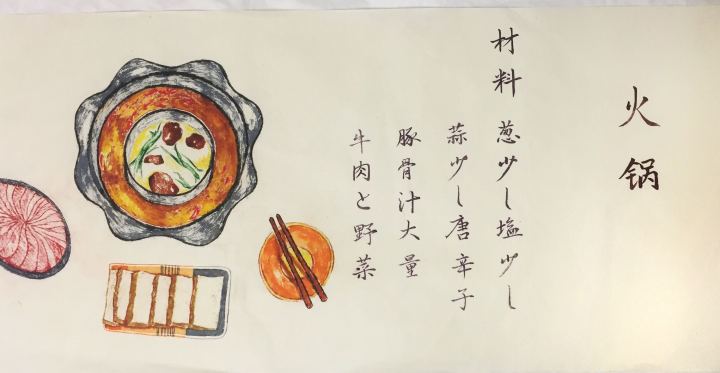 火锅
材料 葱少し塩少し
蒜少し唐辛子
豚骨汁大量
牛肉と野菜